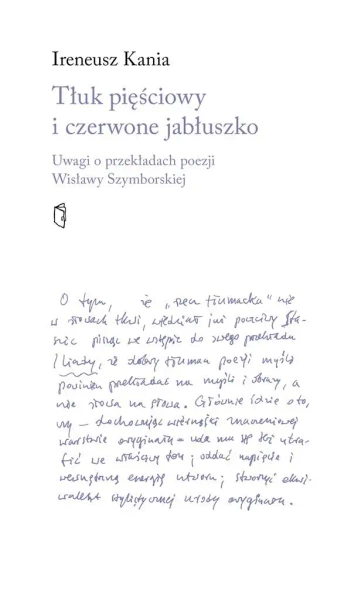 Ireneusz Kania
Tłuk pięściowy
i czerwone jabłuszko
Uwagi o przekładach poezji
Wisławy Szymborskiej
O tym, że „rzecz tłumacka” nie
w słowach tkwi, wiedział już poczciwy Sta-
szic pisząc we wstępie do swego przekładu
Iliady, że dobry tłumacz poezji myśli
powinien przekładać na myśli i obrazy, a
nie słowa na słowa. Głównie idzie o to,
czy – dochowując wierności znaczeniowej
warstwie oryginału – uda mu się też utra-
fić we właściwy ton; oddać napięcie i
wewnętrzną energię utworu; stworzyć ekwi-
walent stylistycznej urody oryginału.